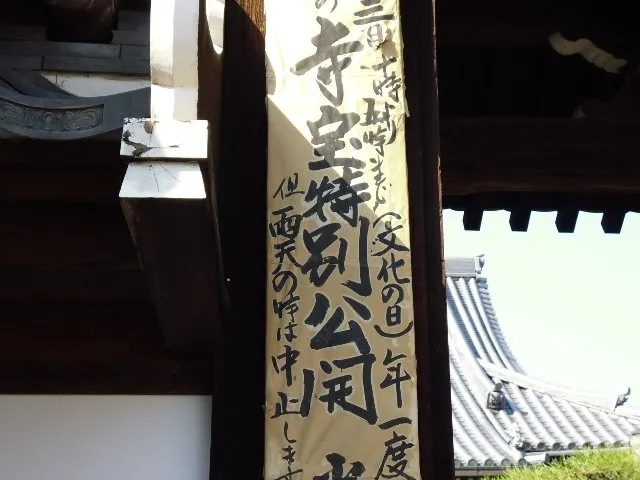 三日十時ヨリ五時まで（文化の日）年一度
の寺宝特別公開
但雨天の時は中止しま